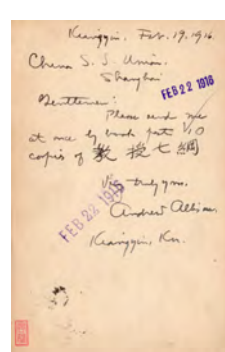 Kiangyin, Feb. 19, 1916
China S. S. Union.
Shanghai
FEB 22 1916
Gentlemen:
Please send me
at once by book post 10
copies of 教授七綱
V. truly yrs.
FEB 22 1916
Andrew Allison.
Kiangyin, Ku.